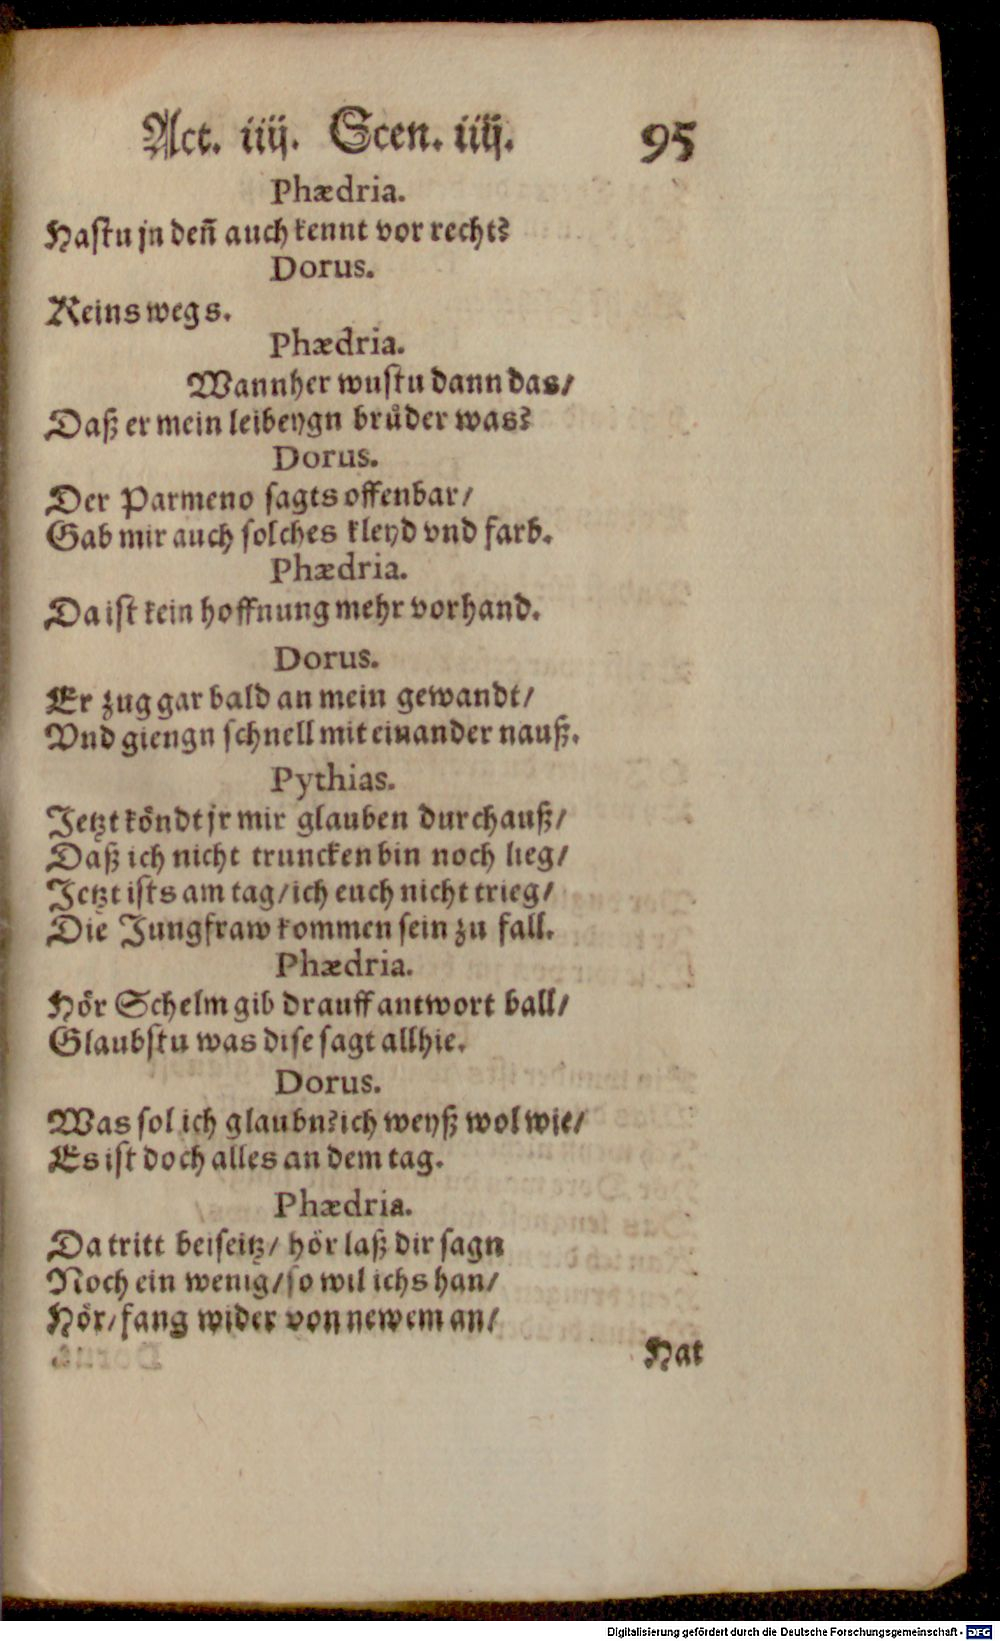 Act. iiij. Scen. iiij. 95
Phædria.
Hastu jn deñ auch kennt vor recht?
Dorus.
Keins wegs.
Phædria.
Wannher wustu dann das/
Daß er mein leibeygn brůder was?
Dorus.
Der Parmeno sagts offenbar/
Gab mir auch solches kleyd vnd farb.
Phædria.
Da ist kein hoffnung mehr vorhand.
Dorus.
Er zug gar bald an mein gewandt/
Vnd giengn schnell mit einander nauß.
Pythias.
Jetzt köndt jr mir glauben durchauß/
Daß ich nicht truncken bin noch lieg/
Jetzt ists am tag/ ich euch nicht trieg/
Die Jungfraw kommen sein zu fall.
Phædria.
Hör Schelm gib drauff antwort ball/
Glaubstu was dise sagt allhie.
Dorus.
Was sol ich glaubn? ich weyß wol wie/
Es ist doch alles an dem tag.
Phædria.
Da tritt beiseitz/ hör laß dir sagn
Noch ein wenig/ so wil ichs han/
Hör/ fang wider von newem an/
Hat
Digitalisierung gefördert durch die Deutsche Forschungsgemeinschaft - DFG